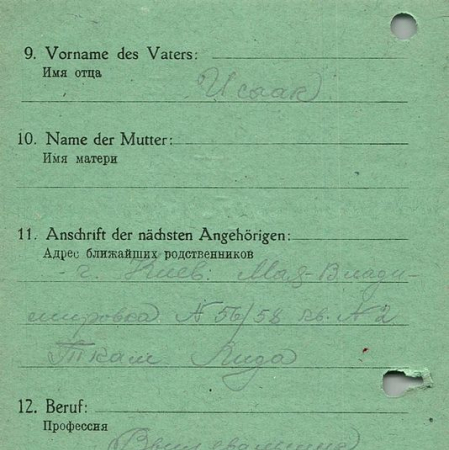 9. Vorname des Vaters:
Имя отца
Исаак
10. Name der Mutter:
Имя матери
11. Anschrift der nächsten Angehörigen:
Адрес ближайших родственников
г. Киев. Мал-Влади-
мировка N 56/58 кв. N 2
Ткач Лида
12. Beruf:
Профессия